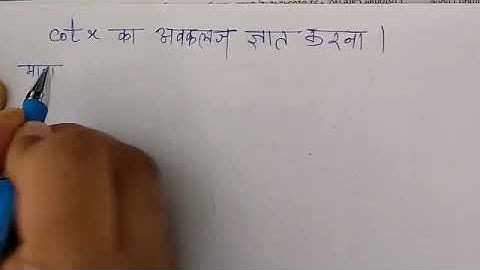 cot x का अवकलज ज्ञात करना ।
माना